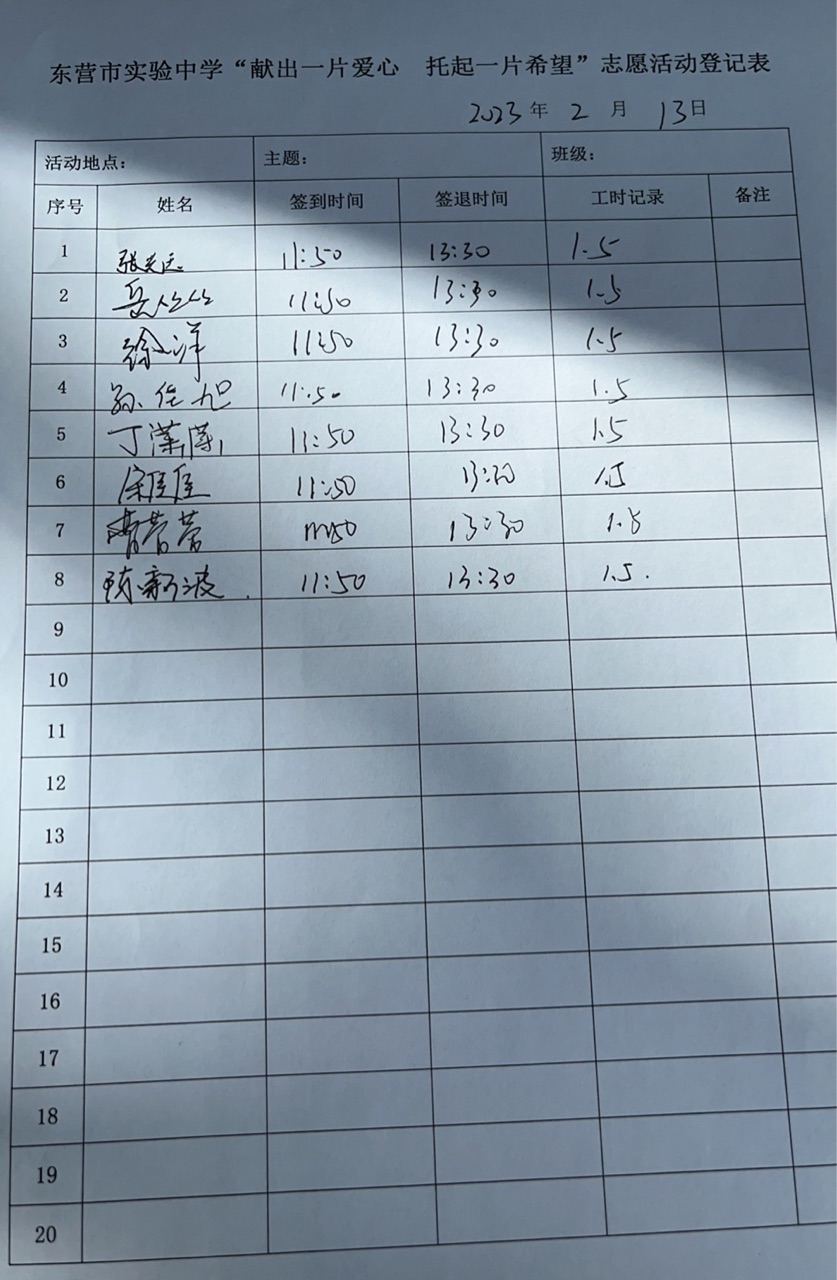 东营市实验中学“献出一片爱心 托起一片希望”志愿活动登记表
2023年 2 月 13日
活动地点： 主题： 班级：
序号 姓名 签到时间 签退时间 工时记录 备注
1 11:50 13:30 1.5
2 11:50 13:30 1.5
3 徐洋 11:50 13:30 1.5
4 孙佳旭 11:50 13:30 1.5
5 丁潇潇 11:50 13:30 1.5
6 11:50 1.5
7 13:30 1.5
8 11:50 13:30 1.5.
9
10
11
12
13
14
15
16
17
18
19
20